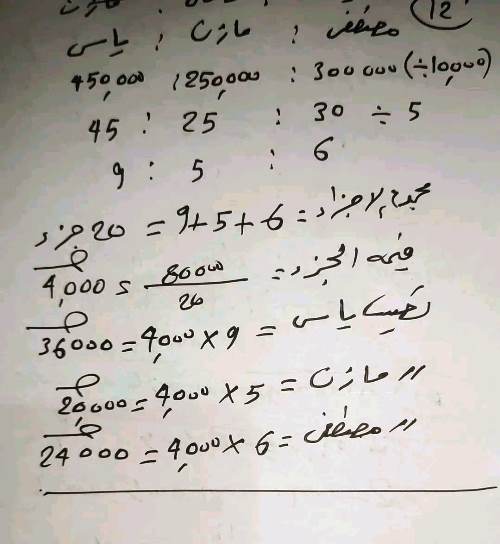 12
مصطفى : مازن : ياسر
300000 (÷10,000) : 250,000 : 450,000
30 ÷ 5 : 25 : 45
6 : 5 : 9
مجموع الاجزاء = 6 + 5 + 9 = 20 جزء
قيمة الجزء = 80000 / 20 = 4,000
نصيب ياسر = 9 × 4,000 = 36000
// مازن = 5 × 4,000 = 20,000
// مصطفى = 6 × 4,000 = 24000